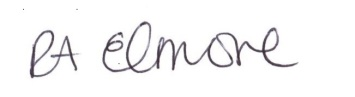 PA Elmore